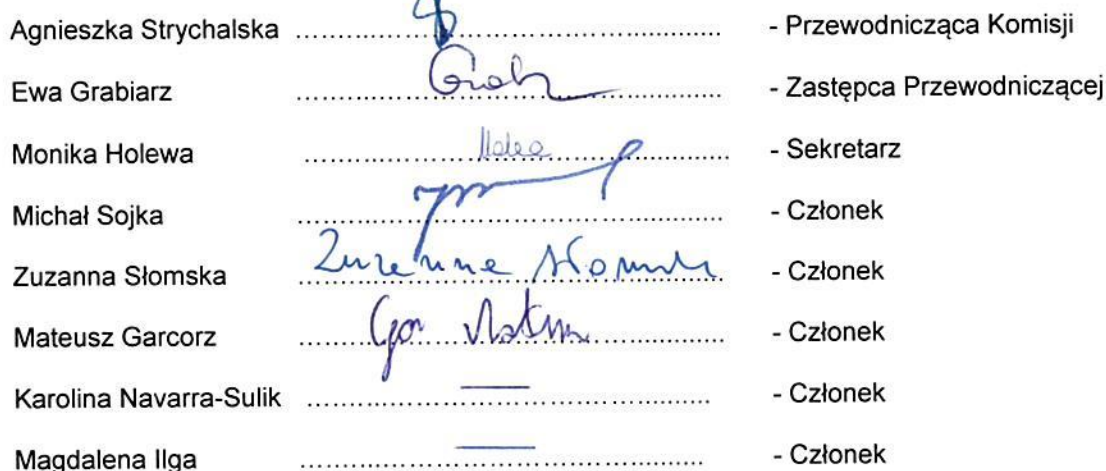 Agnieszka Strychalska ........................................................ - Przewodnicząca Komisji
Ewa Grabiarz ........................................................ - Zastępca Przewodniczącej
Monika Holewa ........................................................ - Sekretarz
Michał Sojka ........................................................ - Członek
Zuzanna Słomska Zuzanna Słomska - Członek
Mateusz Garcorz ........................................................ - Członek
Karolina Navarra-Sulik ........................................................ - Członek
Magdalena Ilga ........................................................ - Członek